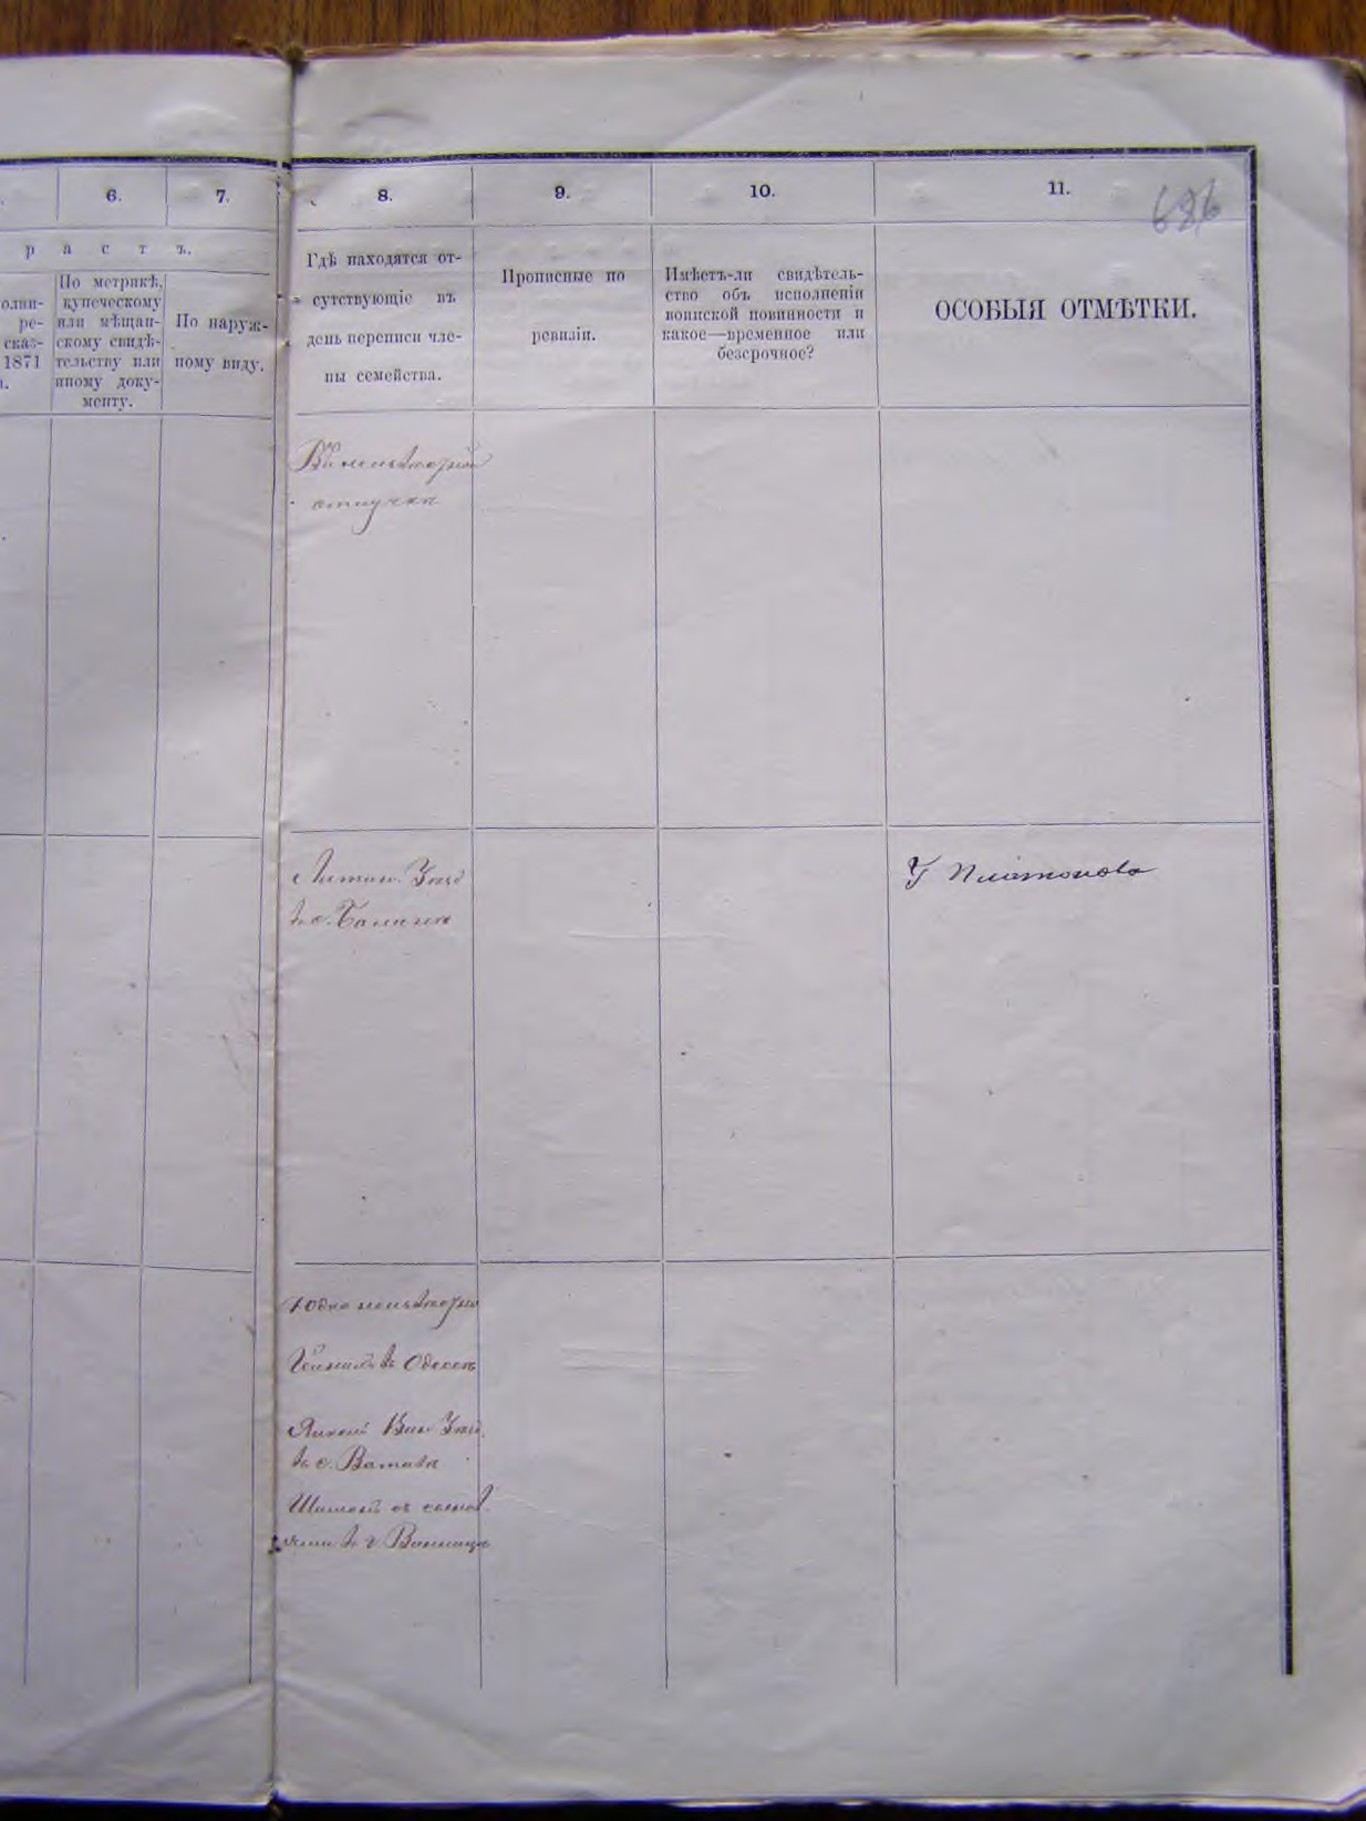 6.
7.
8.
9.
10.
11.
р а с т ъ.
олни-
ре-
сказ-
1871
По метрикѣ,
купеческому
или мѣщан-
скому свидѣ-
тельству или
иному доку-
менту.
По наруж-
ному виду.
Гдѣ находятся от-
сутствующіе въ
день переписи чле-
ны семейства.
Прописные по
ревизіи.
Имѣетъ-ли свидѣтель-
ство объ исполненіи
воинской повинности и
какое—временное или
безсрочное?
ОСОБЫЯ ОТМѢТКИ.
В неизвѣстной
отлучкѣ
Литин. Уѣзд
в с.
У Платонова
неизвѣстно
в Одессѣ
Вин Уѣзд.
в с.
с семей
в г. Винница